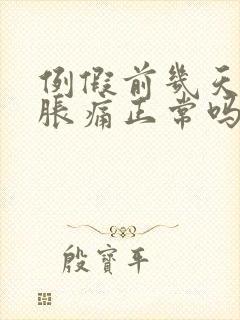 例假前幾天
脹痛正常嗎
殷寶平